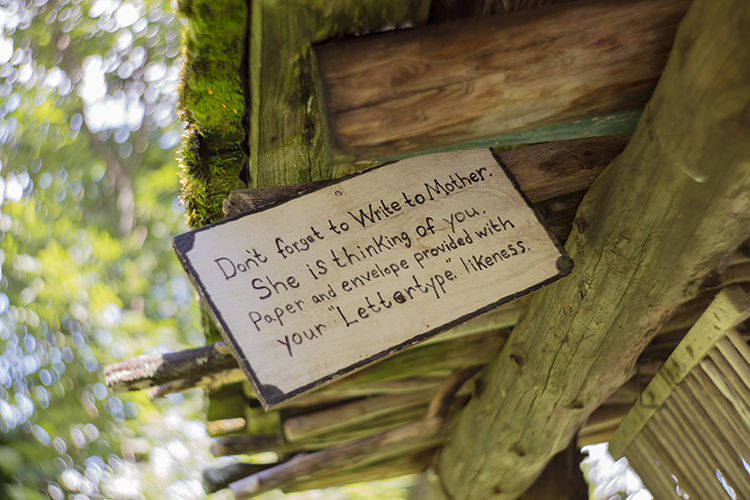 Don't forget to Write to Mother.
She is thinking of you.
Paper and envelope provided with
your "Lettertype." likeness.